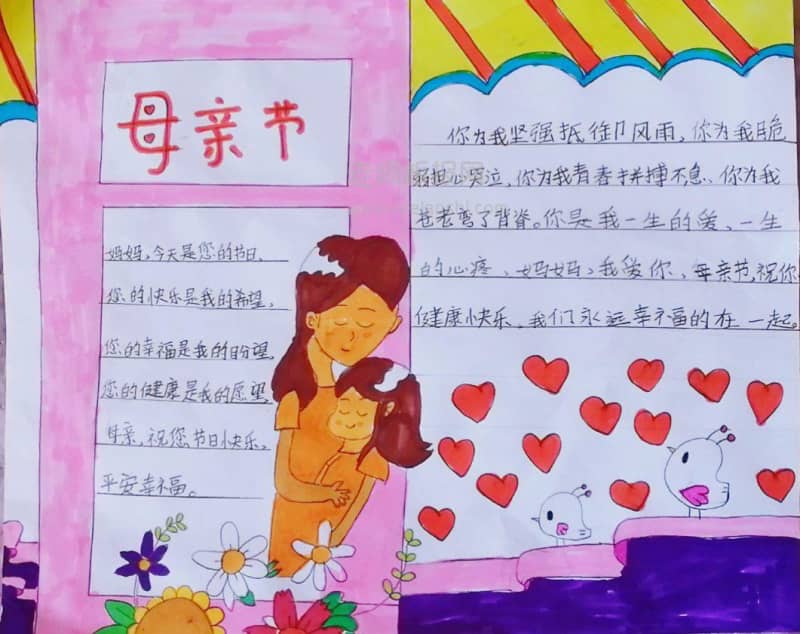 母亲节
妈妈，今天是您的节日，
您的快乐是我的希望，
您的幸福是我的盼望，
您的健康是我的愿望，
母亲，祝您节日快乐，
平安幸福。
你为我坚强抵御风雨，你为我脆
弱担心哭泣，你为我青春拼搏不息、你为我
苍老弯了背脊。你是我一生的爱、一生
的心疼、妈妈，我爱你、母亲节，祝你
健康快乐、我们永远幸福的在一起。